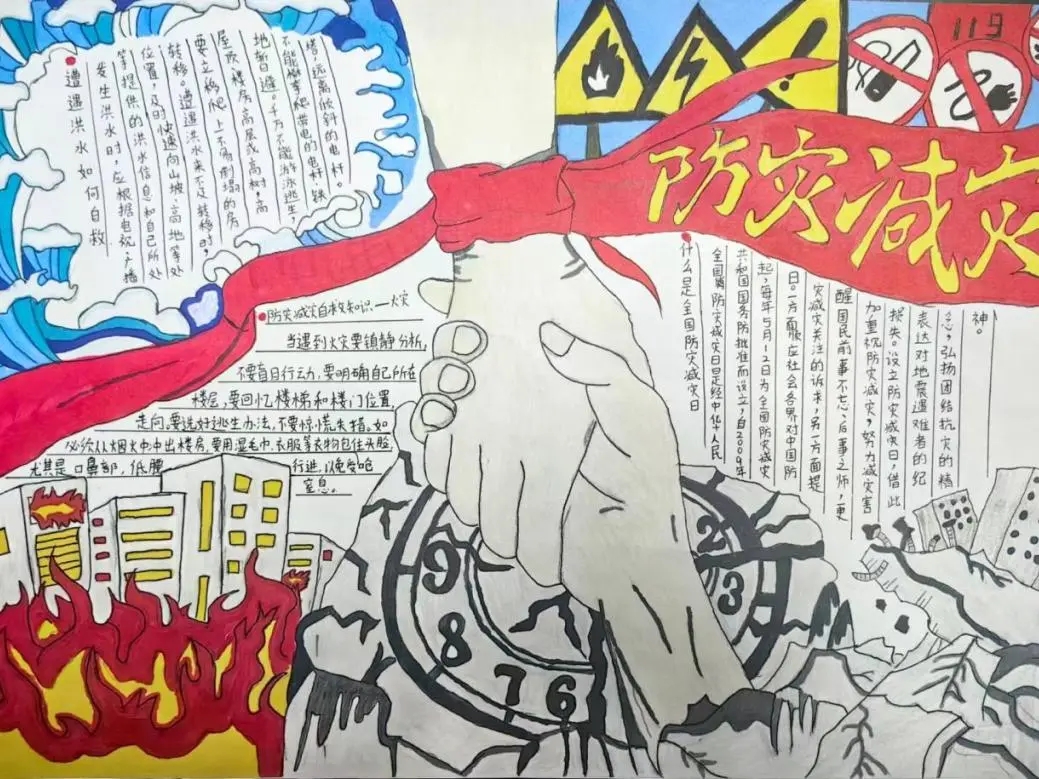 119
防灾减灾
遭遇洪水如何自救
发生洪水时，应根据电视、广播
等提供的洪水信息和自己所处
位置，及时快速向山坡、高地等处
转移。遭遇洪水来不及转移时，
要立杨爬上不易倒塌的房
屋顶、楼房高层或高树，高
地暂日避。千万不能游泳逃生，
不能攀爬带电的电杆、铁
塔，远离倾斜的电杆。
防灾减灾自救知识—火灾
当遇到火灾要镇静分析，
不要盲目行动，要明确自己所在
楼层，要回忆楼梯和楼门位置，
走向，要选好逃生办法，不要惊慌失措。如
必须从烟火中冲出楼房，要用湿毛巾、衣服等衣物包住头脸，
尤其是口鼻部，低腰行进，以免受呛
窒息。
什么是全国防灾减灾日
全国防灾减灾日是经中华人民
共和国国务防批准而设立，自2009年
起，每年5月12日为全国防灾减灾
日。一方面顺应社会各界对中国防
灾减灾关注的诉求，另一方面提
醒国民前事不忘、后事之师，更
加重视防灾减灾，努力减灾害
损失。设立防灾减灾日，借此
表达对地震遇难者的纪
念，弘扬团结抗灾的精
神。
2
3
9
8
7
6